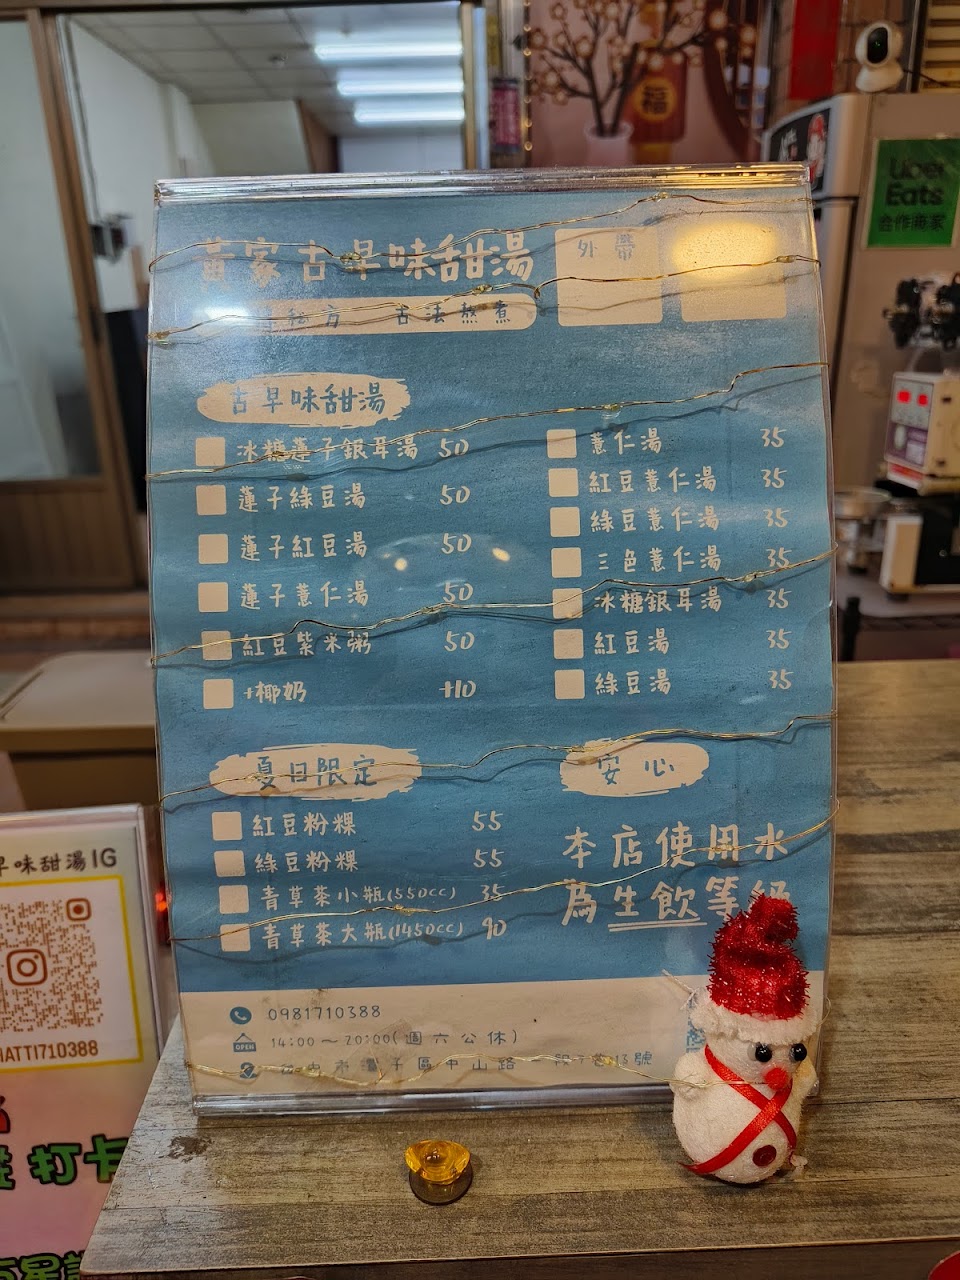 福
Uber
Eats
合作商家
黃家古早味甜湯
外帶
秘方 古法熬煮
古早味甜湯
冰糖蓮子銀耳湯 50
蓮子綠豆湯 50
蓮子紅豆湯 50
蓮子薏仁湯 50
紅豆紫米粥 50
+椰奶 +10
薏仁湯 35
紅豆薏仁湯 35
綠豆薏仁湯 35
三色薏仁湯 35
冰糖銀耳湯 35
紅豆湯 35
綠豆湯 35
夏日限定
紅豆粉粿 55
綠豆粉粿 55
青草茶小瓶(550cc) 35
青草茶大瓶(1450cc) 90
安心
本店使用水
為生飲等級
0981710388
OPEN
14:00～20:00(週六公休)
市潭子區中山路 段 13號
早味甜湯IG
IATTI710388
打卡